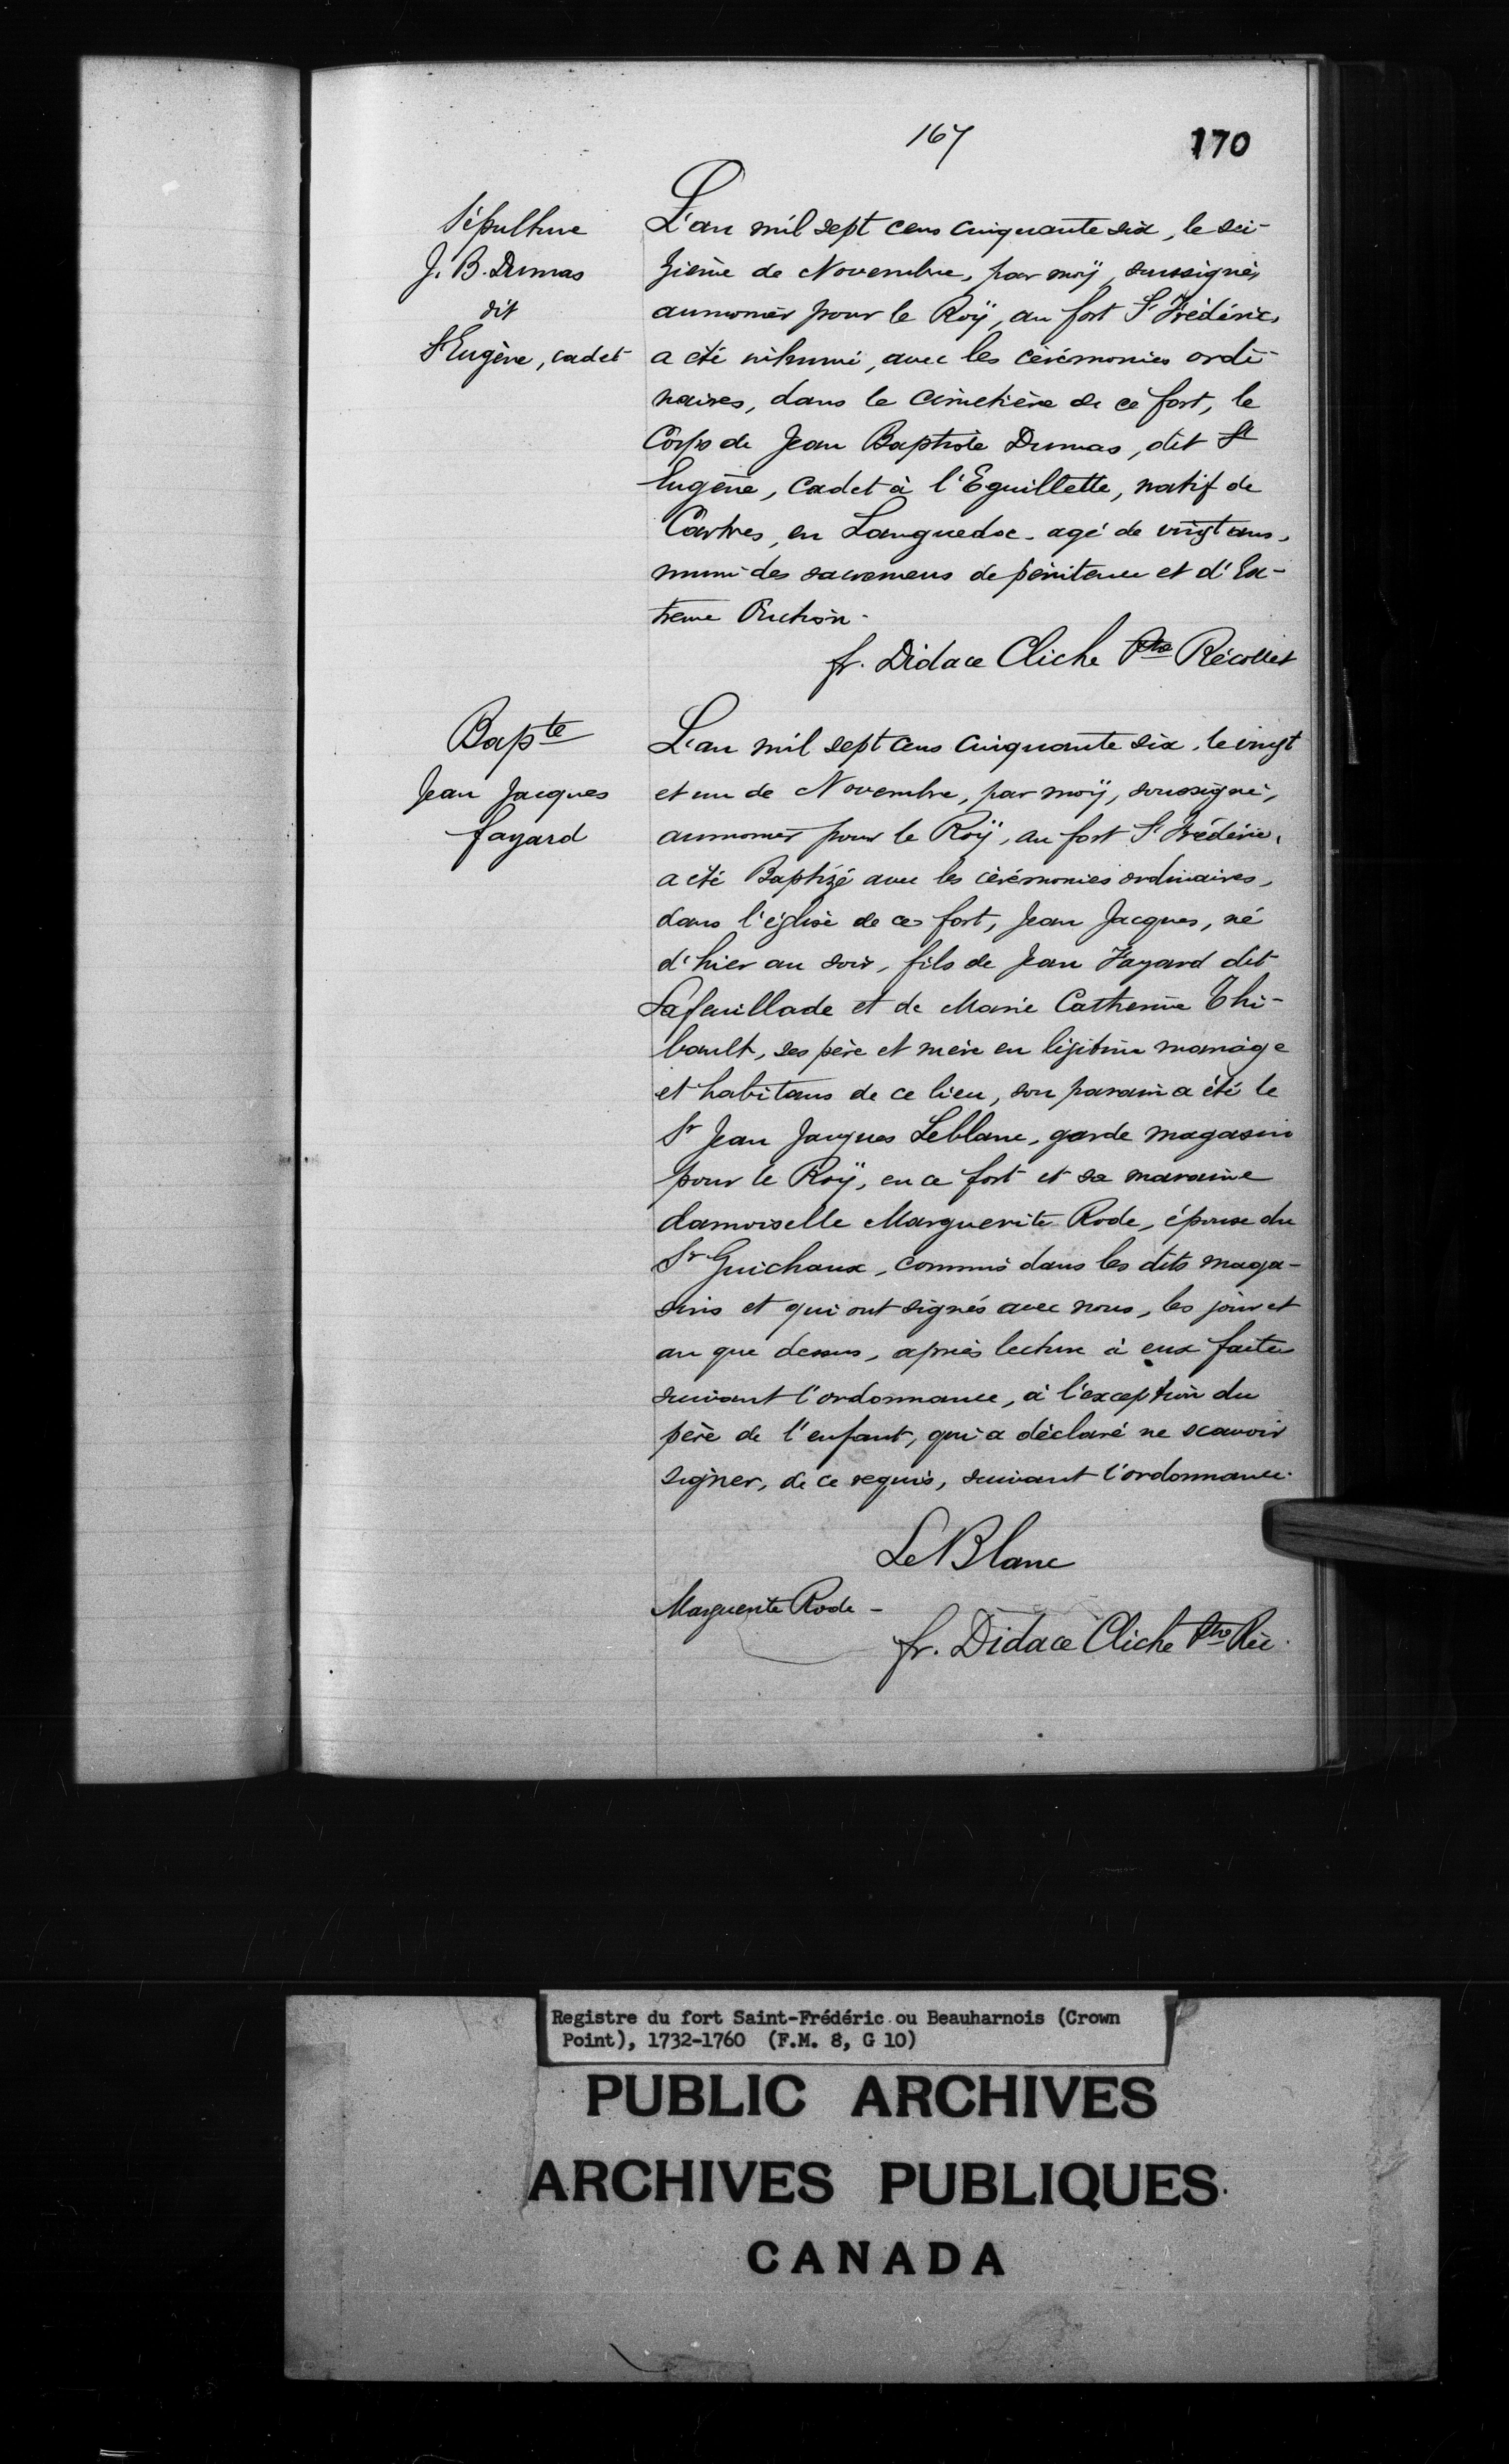 167
170
Sépulture
J. B. Dumas
dit
St Eugène, cadet
L'an mil sept cens cinquante six, le sei-
zième de Novembre, par moÿ, soussigné,
aumonier pour le Roÿ, au fort St Frédéric,
a été inhumé, avec les cérémonies ordi-
naires, dans le cimetière de ce fort, le
Corps de Jean Baptiste Dumas, dit St
Eugène, Cadet à l'Eguillette, natif de
Castres, en Languedoc. agé de vingt ans,
muni des sacremens de pénitence et d'Ex-
treme Onction.
fr. Didace Cliche Ptre Récollet
Bapte
Jean Jacques
fayard
L'an mil sept cens cinquante six, le vingt
et un de Novembre, par moÿ, soussigné,
aumonier pour le Roÿ, au fort St Frédéric,
a été Baptizé avec les cérémonies ordinaires,
dans l'église de ce fort, Jean Jacques, né
d'hier au soir, fils de Jean Fayard dit
Lafeuillade et de Marie Catherine Thi-
bault, ses père et mère en légitime mariage
et habitans de ce lieu, son parain a été le
Sr Jean Jacques Leblanc, garde magasin
pour le Roÿ, en ce fort et sa maraine
damoiselle Marguerite Rode, épouse du
Sr Guichaux, commis dans les dits maga-
sins et qui ont signés avec nous, les jour et
an que dessus, après lecture à eux faite
suivant l'ordonnance, à l'exception du
père de l'enfant, qui a déclaré ne scavoir
signer, de ce requis, suivant l'ordonnance.
LeBlanc
Marguerite Rode -
fr. Didace Cliche Ptre Réc.
Registre du fort Saint-Frédéric ou Beauharnois (Crown
Point), 1732-1760 (F.M. 8, G 10)
PUBLIC ARCHIVES
ARCHIVES PUBLIQUES
CANADA